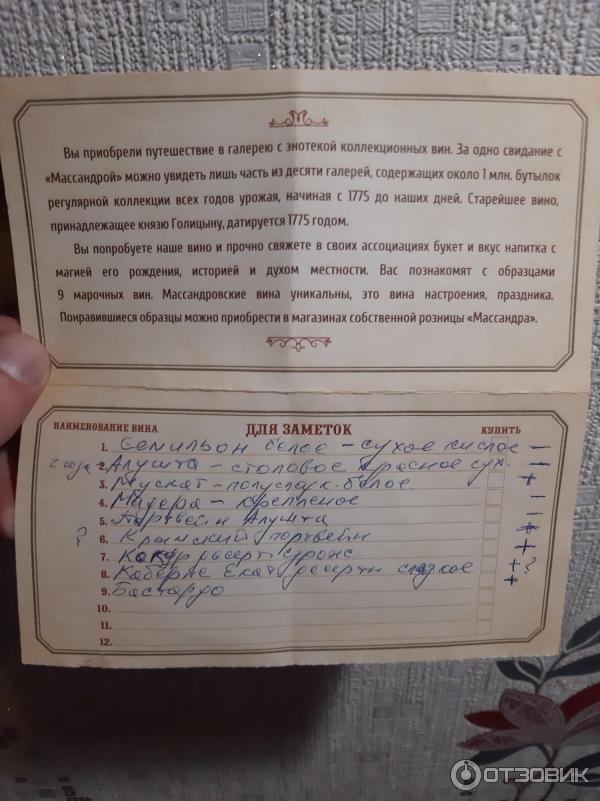 Вы приобрели путешествие в галерею с энотекой коллекционных вин. За одно свидание с
«Массандрой» можно увидеть лишь часть из десяти галерей, содержащих около 1 млн. бутылок
регулярной коллекции всех годов урожая, начиная с 1775 до наших дней. Старейшее вино,
принадлежащее князю Голицыну, датируется 1775 годом.
Вы попробуете наше вино и прочно свяжете в своих ассоциациях букет и вкус напитка с
магией его рождения, историей и духом местности. Вас познакомят с образцами
9 марочных вин. Массандровские вина уникальны, это вина настроения, праздника.
Понравившиеся образцы можно приобрести в магазинах собственной розницы «Массандра».
НАИМЕНОВАНИЕ ВИНА ДЛЯ ЗАМЕТОК КУПИТЬ
1. Семильон белое - сухое кислое -
2 года 2. Алушта - столовое красное сух. -
3. Мускат - полуслад к. белое +
4. Мадера - крепленое -
5. Портвейн Алушта -
? 6. Крымский портвейн +
7. Кокур десерт +
8. Каберне Екат десертн сладкое + ?
9. Бастардо +
10.
11.
12.
ОТЗОВИК